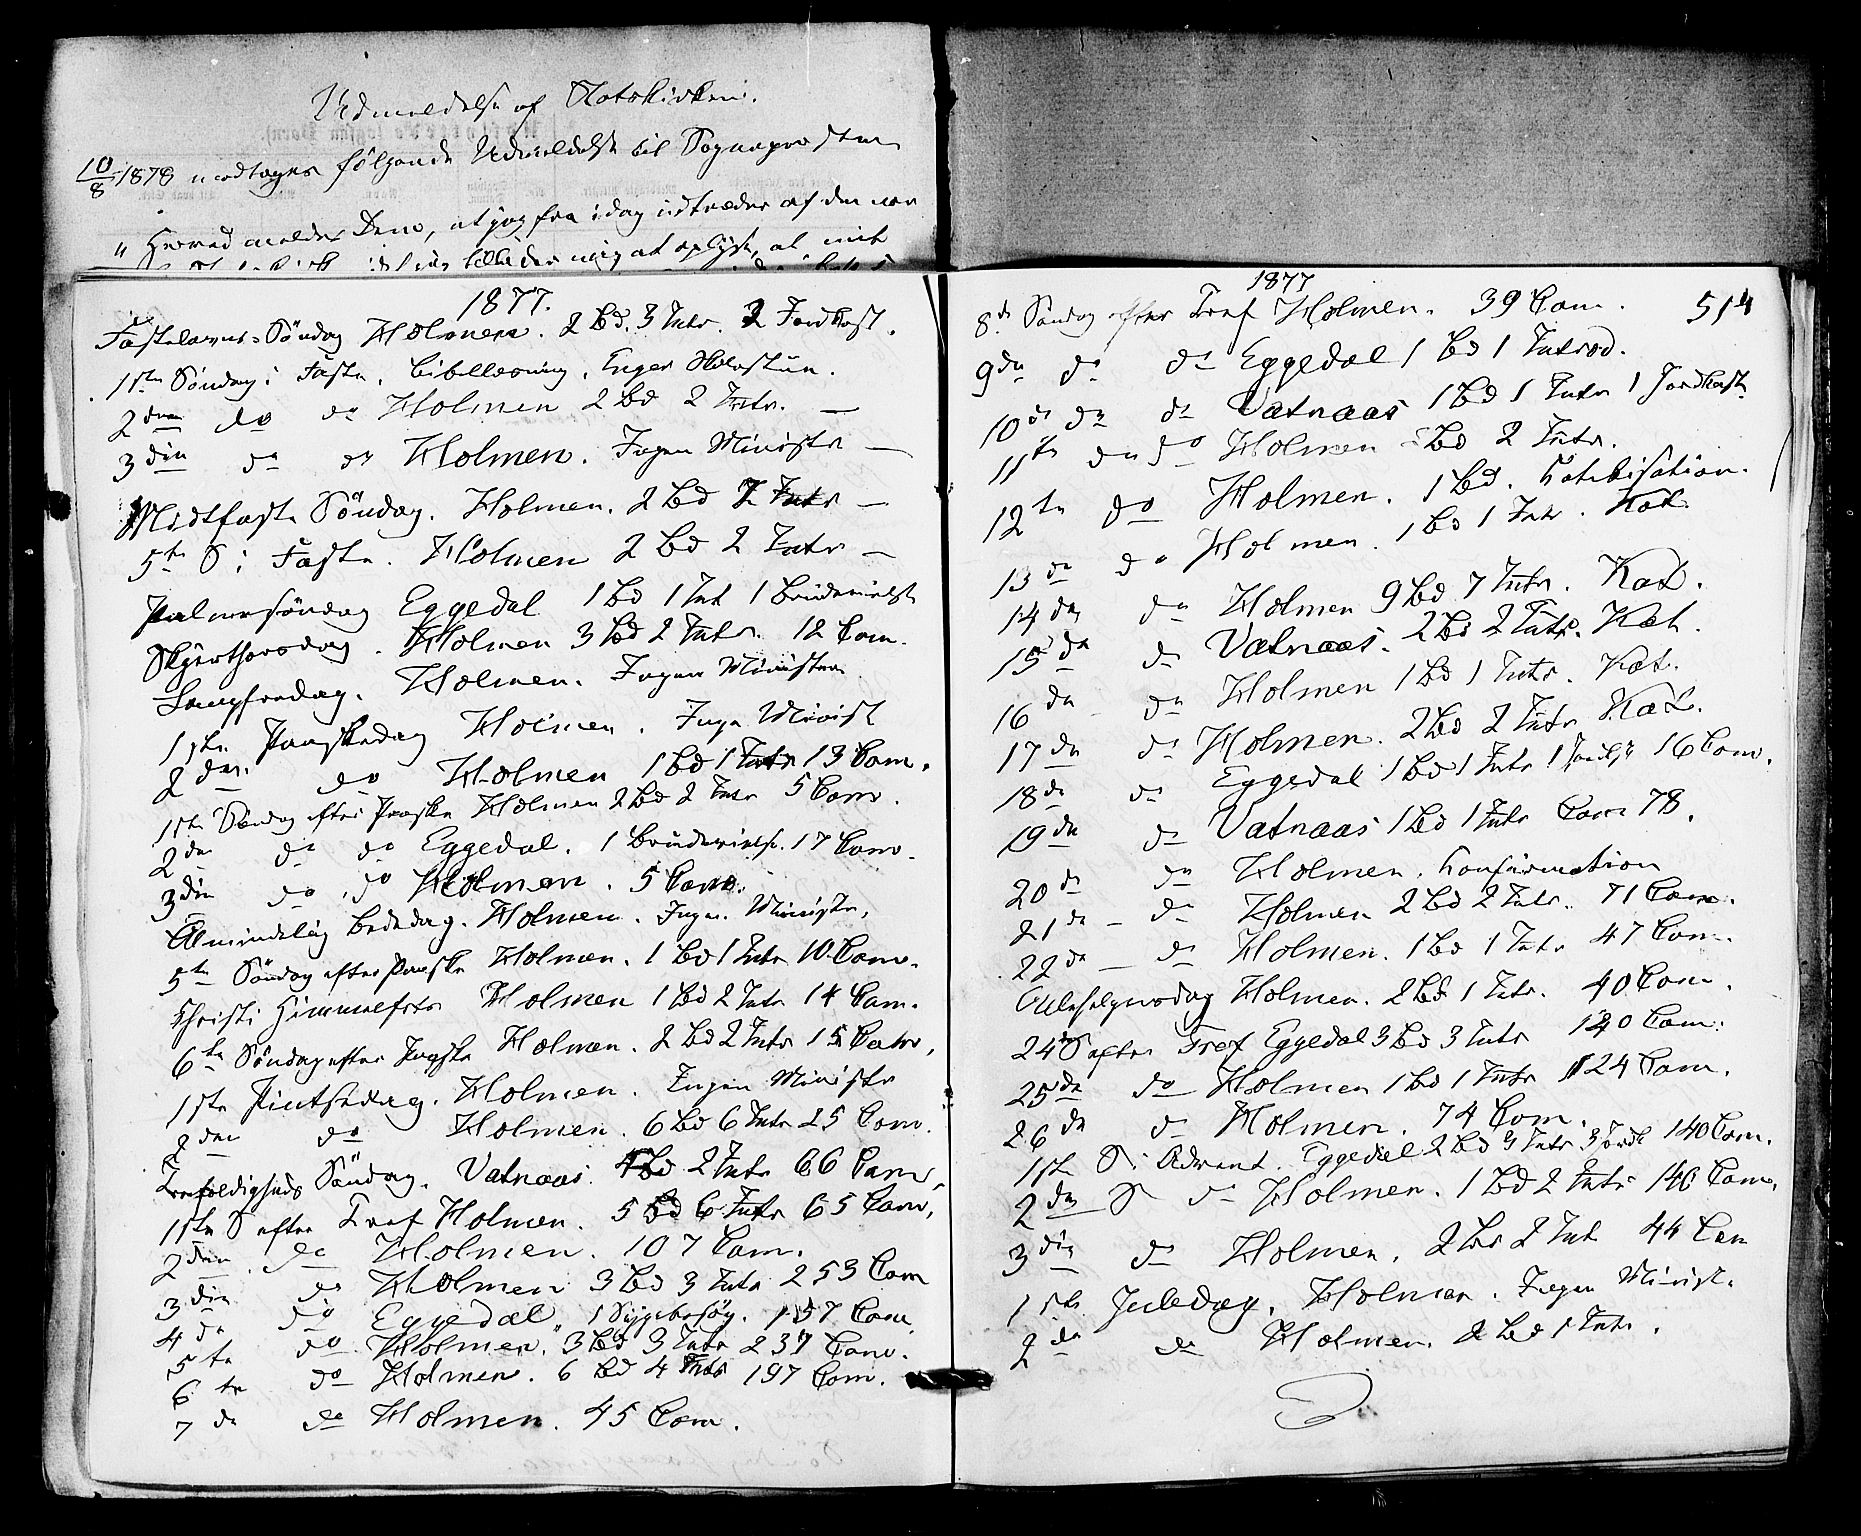 Udmeldelse af Statskirken.
10/8 1878 modtages følgende Udmeldelse til Sognepresten
" Herved meldes Dem, at jeg fra idag udtræder af den nor
tillader mig at oplyse, at mit
1877.
Fastelavns-Söndag Holmen. 2 Bd. 3 Intr. 2 Jordkast.
1ste Söndag i Faste. Bibellæsning.
2den do do Holmen 2 Bd 2 Intr. —
3die do do Holmen. Ingen Ministr —
Midtfaste Söndag. Holmen. 2 Bd 2 Intr —
5te S. i Faste. Holmen 2 Bd 2 Intr —
Palmesöndag Eggedal 1 Bd 1 Int 1 Brudevielse
Skjærthorsdag. Holmen 3 Bd 2 Intr. 12 Com.
Langfredag. Holmen. Ingen Ministr.
1ste Paaskedag Holmen. Ingen Minist
2den do Holmen 1 Bd 1 Intr 13 Com.
1ste Söndag efter Paaske Holmen 2 Bd 2 Intr 5 Com.
2den do do Eggedal. 1 Brudevielse. 17 Com.
3die do do Holmen. 5 Com.
Almindelig Bededag. Holmen. Ingen Ministr.
5te Söndag efter Paaske Holmen. 1 Bd 1 Intr 10 Com.
Christi Himmelfarts Holmen 1 Bd 2 Intr 14 Com.
6te Söndag efter Paaske Holmen. 2 Bd 2 Intr 15 Com.
1ste Pintsedag. Holmen. Ingen Ministr
2den do Holmen. 6 Bd 6 Intr 25 Com.
Trefoldigheds Söndag. Vatnaas. 4 Bd 2 Intr 66 Com.
1ste S efter Tref Holmen. 5 Bd 6 Intr 65 Com.
2den do Holmen. 107 Com.
3die do Holmen 3 Bd 3 Intr 253 Com
4de do Eggedal. 1 Sygebesög. 137 Com.
5te do Holmen. 3 Bd 3 Intr 237 Com.
6te do Holmen. 6 Bd 4 Intr 197 Com.
7de do Holmen. 45 Com.
1877
8de Söndag efter Tref Holmen. 39 Com. 514
9de do do Eggedal 1 Bd 1 Introd.
10de do do Vatnaas 1 Bd 1 Intr 1 Jordkast.
11te do do Holmen Bd 2 Intr.
12te do Holmen. 1 Bd. Katekisation.
13de do Holmen. 1 Bd 1 Intr. Kat.
14de do Holmen 9 Bd. 7 Intr. Kat.
15de do Vatnaas. 2 Bd 2 Intr. Kat.
16de do Holmen 1 Bd 1 Intr. Kat.
17de do Holmen. 2 Bd 2 Intr Kat.
18de do Eggedal 1 Bd 1 Intr 1 Jordk 16 Com.
19de do Vatnaas 1 Bd 1 Intr Com 78.
20de do Holmen. Konfirmation
21de — do Holmen 2 Bd 2 Intr. 71 Com.
22de — do Holmen. 1 Bd 1 Intr 47 Com.
Allehelgensdag Holmen. 2 Bd 1 Intr. 40 Com.
24de S efter Tref Eggedal 3 Bd 3 Intr 120 Com.
25de do Holmen 1 Bd 1 Intr 124 Com.
26de do Holmen. 74 Com.
1ste S. i Advent. Eggedal 2 Bd 3 Intr 3 Jordk 140 Com.
2den S do Holmen. 1 Bd 2 Intr 146 Com.
3die do Holmen. 2 Bd 2 Int 44 Com
1ste Juledag. Holmen. Ingen Minist.
2de do Holmen. 2 Bd 1 Intr.